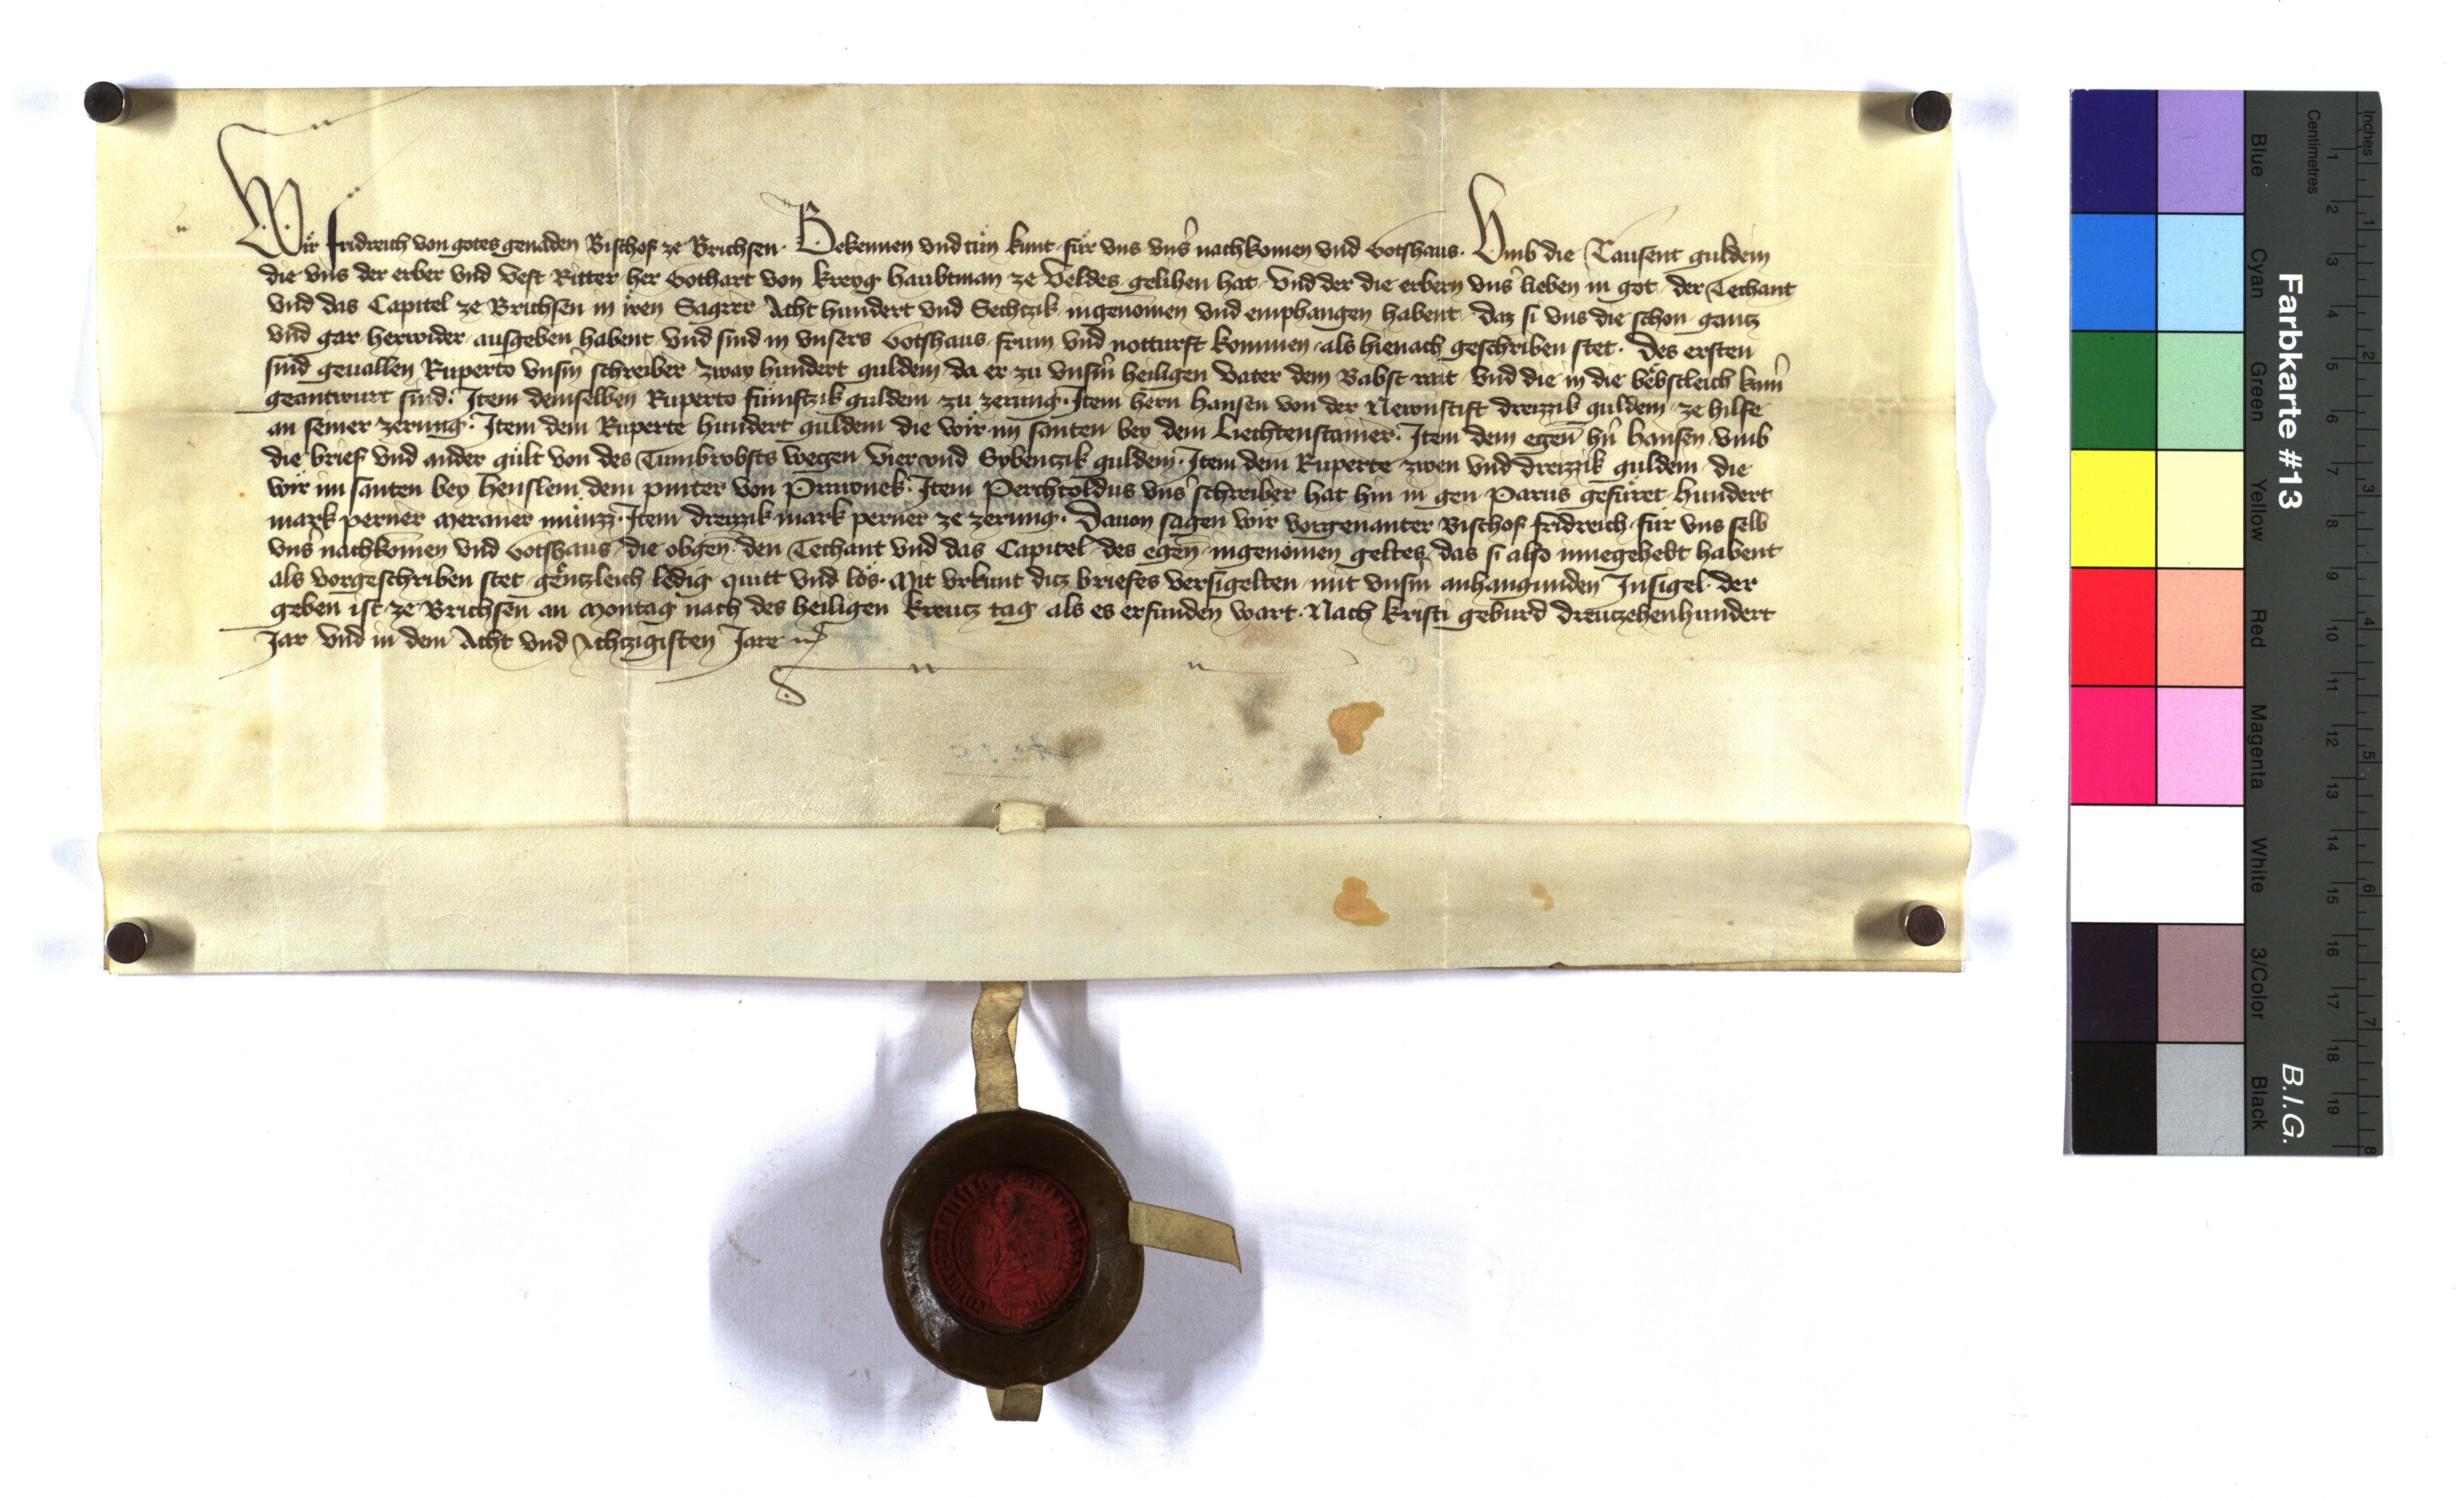 Wir fridreich von gotes genaden Bischof ze Brichsen. Bekennen vnd tůn kunt für vns vns̉ nachkomen vnd Gotshaus. Vmb die Tausent guldein
die vns der erber vnd vest Ritter her Gothart von kreyg haubtman ze Veldes gelihen hat vnd der die erbern vns̉ lieben in got der Techant
vnd das Capitel ze Brichsen in iren Sagrer Acht hundert vnd Sechczik ingenomen vnd emphangen habent daz si vns die schon gantz
vnd gar herwider ausgeben habent vnd sind in vnsers Gotshaus frum vnd notturft kommen als hienach geschriben stet. Des ersten
sind geuallen Ruperto vnsm̉ schreiber zway hundert guldein da er zu vnsm̉ heiligen vater dem Babst rait vnd die in die bebstleich kam̉
geantwurt sind. Item demselben Ruperto fümftzik guldein zu zerung. Item hern hansen von der Newnstift dreizzik guldein ze hilfe
an seiner zerung. Item dem Ruperte hundert guldein die wir im santen bey dem Liechtenstainer. Item dem egen̄ hn̉ hansen vmb
die brief vnd ander gült von des Tumbrobsts wegen vier vnd Sybenczik guldein. Item dem Ruperte zwen vnd dreizzik guldein die
wir im santen bey henslein dem pinter von Prawnek. Item Perchtoldus vns̉ schreiber hat hin in gen Parus gefüret hundert
mark perner meraner münzz. Item dreizzik mark perner ze zerung. Dauon sagen wir vorgenanter Bischof fridreich für vns selb
vns̉ nachkomen vnd Gotshaus die obgen̄ den Techant vnd das Capitel des egen̄ ingenomen geltes das si also innegehebt habent
als vorgeschriben stet gentzleich ledig quitt vnd los. Mit vrkunt ditz briefes versigelten mit vnsm̉ anhangunden Insigel der
geben ist ze Brichsen an Montag nach des heiligen kreutz tag als es erfunden wart. Nach kristi geburd dreutzehenhundert
Jar vnd in dem Acht vnd Achtzigisten Jare
Farbkarte #13
B.I.G.
Inches
Centimetres
Blue
Cyan
Green
Yellow
Red
Magenta
White
3/Color
Black
1 2 3 4 5 6 7 8 9 10 11 12 13 14 15 16 17 18 19
1 2 3 4 5 6 7 8